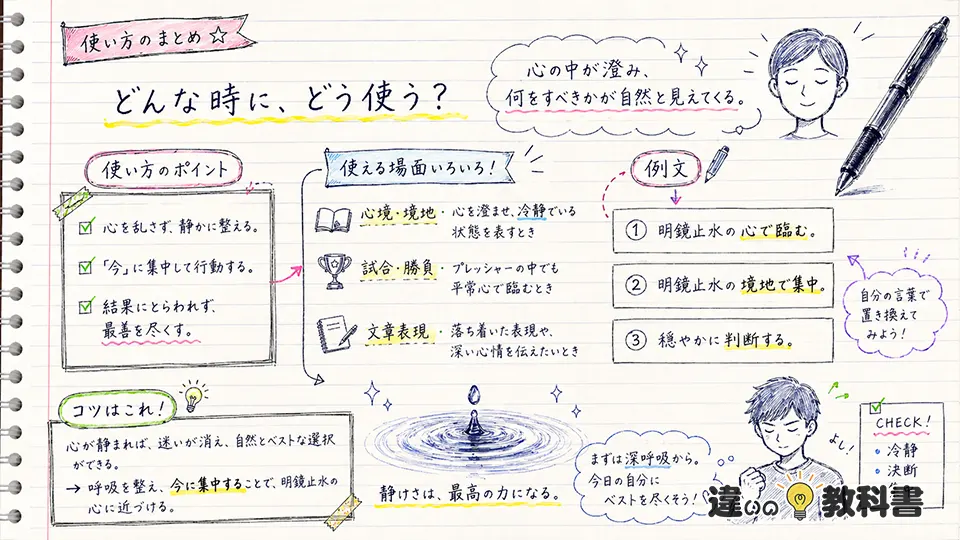 使い方のまとめ☆
どんな時に、どう使う？
心の中が澄み、
何をすべきかが自然と見えてくる。
使い方のポイント
心を乱さず、静かに整える。
「今」に集中して行動する。
結果にとらわれず、
最善を尽くす。
使える場面いろいろ！
心境・境地・心を澄ませ、冷静でいる
状態を表すとき
試合・勝負・プレッシャーの中でも
平常心で臨むとき
文章表現・落ち着いた表現や、
深い心情を伝えたいとき
例文
① 明鏡止水の心で臨む。
② 明鏡止水の境地で集中。
③ 穏やかに判断する。
自分の言葉で
置き換えて
みよう！
コツはこれ！
心が静まれば、迷いが消え、自然とベストな選択
ができる。
→ 呼吸を整え、今に集中することで、明鏡止水の
心に近づける。
静けさは、最高の力になる。
まずは深呼吸から。
今日の自分に
ベストを尽くそう！
よし！
CHECK！
・冷静
・決断
違いの教科書